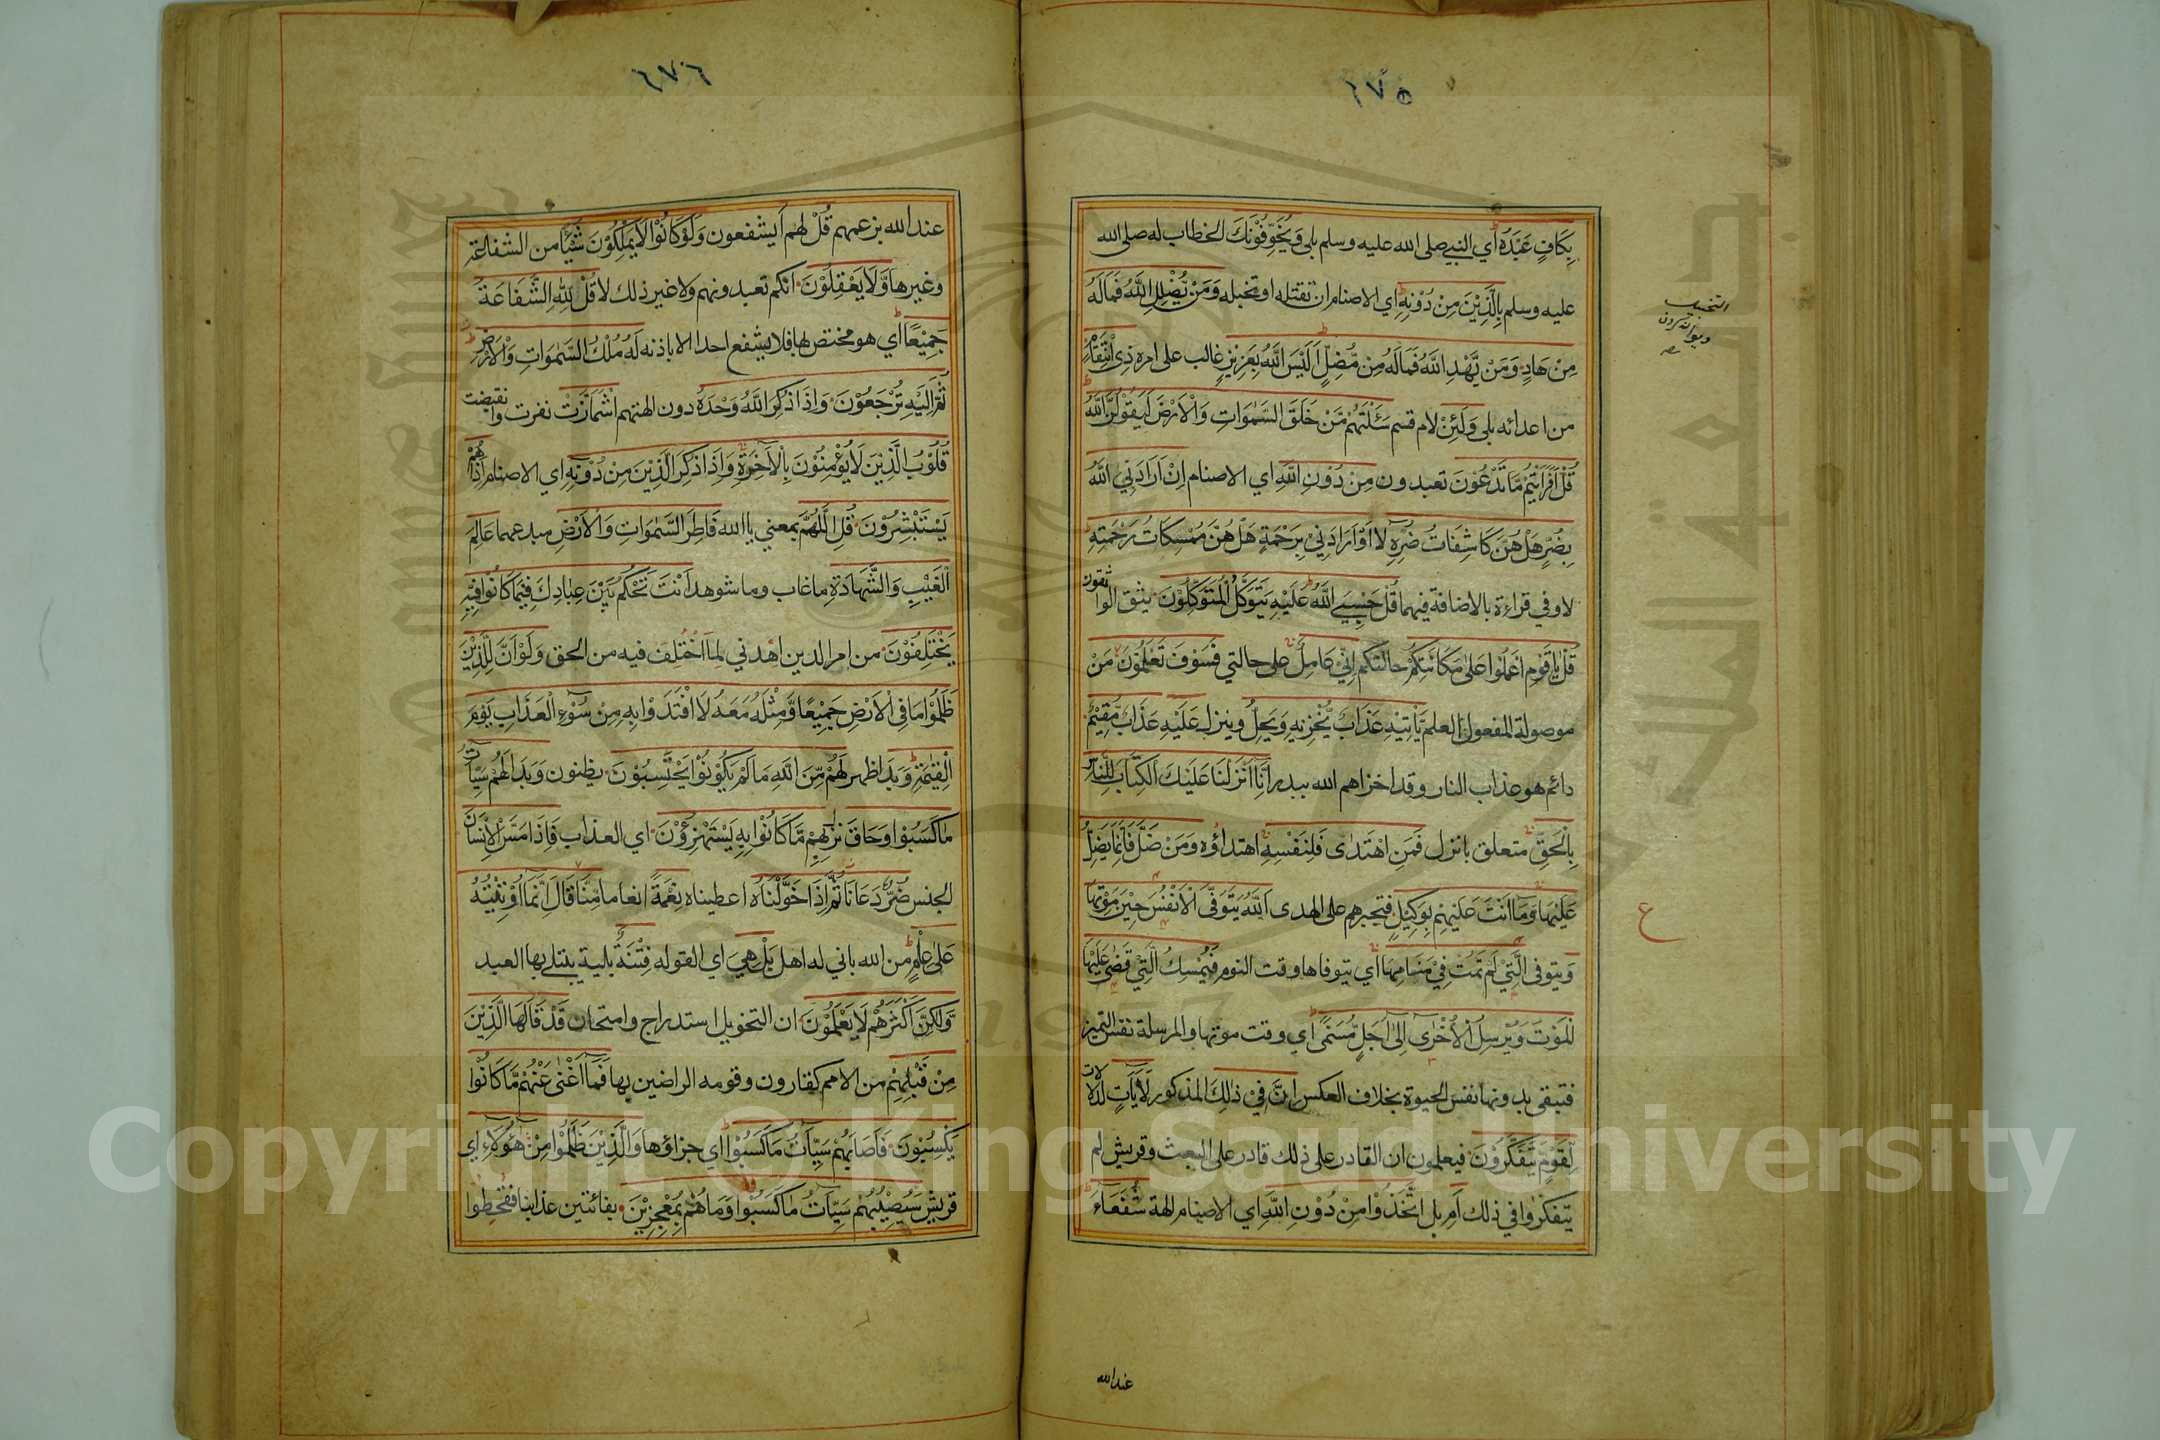 ٦٧٥
بِكَافٍ عَبْدَهُ أي النبي صلى الله عليه وسلم بلى وَيُخَوِّفُوْنَكَ الخطاب له صلى الله
عليه وسلم بِالَّذِيْنَ مِنْ دُوْنِهٖ اي الاصنام ان تقتله او تخبله وَمَنْ يُّضْلِلِ اللّٰهُ فَمَالَهُ
مِنْ هَادٍ وَمَنْ يَّهْدِ اللّٰهُ فَمَالَهُ مِنْ مُّضِلٍّ اَلَيْسَ اللّٰهُ بِعَزِيْزٍ غالب على امره ذِى انْتِقَامٍ
من اعدائه بلى وَلَئِنْ لام قسم سَئَلْتَهُمْ مَّنْ خَلَقَ السَّمٰوَاتِ وَالْاَرْضَ لَيَقُوْلُنَّ اللّٰهُ
قُلْ اَفَرَاَيْتُمْ مَّا تَدْعُوْنَ تعبدون مِنْ دُوْنِ اللّٰهِ اي الاصنام اِنْ اَرَادَنِيَ اللّٰهُ
بِضُرٍّ هَلْ هُنَّ كَاشِفَاتُ ضُرِّهٖ لا اَوْ اَرَادَنِيْ بِرَحْمَةٍ هَلْ هُنَّ مُمْسِكَاتُ رَحْمَتِهٖ
لا وفي قراءة بالاضافة فيهما قُلْ حَسْبِيَ اللّٰهُ عَلَيْهِ يَتَوَكَّلُ الْمُتَوَكِّلُوْنَ يثق الواثقون
قُلْ يَا قَوْمِ اعْمَلُوْا عَلٰى مَكَانَتِكُمْ حالتكم اِنِّيْ عَامِلٌ على حالتي فَسَوْفَ تَعْلَمُوْنَ مَنْ
موصولة المفعول العلم يَّاْتِيْهِ عَذَابٌ يُّخْزِيْهِ وَيَحِلُّ وينزل عَلَيْهِ عَذَابٌ مُّقِيْمٌ
دائم هو عذاب النار وقد اخزاهم الله ببدر اِنَّا اَنْزَلْنَا عَلَيْكَ الْكِتَابَ لِلنَّاسِ
بِالْحَقِّ متعلق بانزل فَمَنِ اهْتَدٰى فَلِنَفْسِهٖ اهتداؤه وَمَنْ ضَلَّ فَاِنَّمَا يَضِلُّ
عَلَيْهَا وَمَا اَنْتَ عَلَيْهِمْ بِوَكِيْلٍ فتجبرهم على الهدى اَللّٰهُ يَتَوَفَّى الْاَنْفُسَ حِيْنَ مَوْتِهَا
وَيتوفى الَّتِيْ لَمْ تَمُتْ فِيْ مَنَامِهَا أي يتوفاها وقت النوم فَيُمْسِكُ الَّتِيْ قَضٰى عَلَيْهَا
الْمَوْتَ وَيُرْسِلُ الْاُخْرٰى اِلٰى اَجَلٍ مُّسَمًّى أي وقت موتها والمرسلة نفس التميز
فتبقى بدونها نفس الحيوة بخلاف العكس اِنَّ فِيْ ذٰلِكَ المذكور لَاٰيَاتٍ لدلالات
لِّقَوْمٍ يَّتَفَكَّرُوْنَ فيعلمون ان القادر على ذلك قادر على البعث وقريش لم
يتفكروا في ذلك اَمِ بل اتَّخَذُوْا مِنْ دُوْنِ اللّٰهِ اي الاصنام الهة شُفَعَاءَ
ع
عند الله
٦٧٦
عند الله بزعمهم قُلْ لهم اَيشفعون وَلَوْ كَانُوْا لَا يَمْلِكُوْنَ شَيْئًا من الشفاعة
وغيرها وَّلَا يَعْقِلُوْنَ انكم تعبدونهم ولا غير ذلك لا قُلْ لِّلّٰهِ الشَّفَاعَةُ
جَمِيْعًا أي هو مختص بها فلا يشفع احد الا باذنه لَهٗ مُلْكُ السَّمٰوَاتِ وَالْاَرْضِ
ثُمَّ اِلَيْهِ تُرْجَعُوْنَ وَاِذَا ذُكِرَ اللّٰهُ وَحْدَهُ دون الهتهم اشْمَاَزَّتْ نفرت وانقبضت
قُلُوْبُ الَّذِيْنَ لَا يُؤْمِنُوْنَ بِالْاٰخِرَةِ وَاِذَا ذُكِرَ الَّذِيْنَ مِنْ دُوْنِهٖ اي الاصنام اِذَا هُمْ
يَسْتَبْشِرُوْنَ قُلِ اللّٰهُمَّ بمعني يا الله فَاطِرَ السَّمٰوَاتِ وَالْاَرْضِ مبدعهما عَالِمَ
الْغَيْبِ وَالشَّهَادَةِ ما غاب وما شوهد اَنْتَ تَحْكُمُ بَيْنَ عِبَادِكَ فِيْمَا كَانُوْا فِيْهِ
يَخْتَلِفُوْنَ من امر الدين اهدني لِمَا اخْتُلِفَ فيه من الحق وَلَوْ اَنَّ لِلَّذِيْنَ
ظَلَمُوْا مَا فِي الْاَرْضِ جَمِيْعًا وَّمِثْلَهُ مَعَهُ لَافْتَدَوْا بِهٖ مِنْ سُوْءِ الْعَذَابِ يَوْمَ
الْقِيٰمَةِ وَبَدَا ظهر لَهُمْ مِّنَ اللّٰهِ مَا لَمْ يَكُوْنُوْا يَحْتَسِبُوْنَ يظنون وَبَدَا لَهُمْ سَيِّاٰتُ
مَا كَسَبُوْا وَحَاقَ نزل بِهِمْ مَّا كَانُوْا بِهٖ يَسْتَهْزِءُوْنَ اي العذاب فَاِذَا مَسَّ الْاِنْسَانَ
الجنس ضُرٌّ دَعَانَا ثُمَّ اِذَا خَوَّلْنَاهُ اعطيناه نِعْمَةً انعاما مِّنَّا قَالَ اِنَّمَا اُوْتِيْتُهُ
عَلٰى عِلْمٍ من الله باني له اهل بَلْ هِيَ اي القولة فِتْنَةٌ بلية يبتلى بها العبد
وَّلٰكِنَّ اَكْثَرَهُمْ لَا يَعْلَمُوْنَ ان التخويل استدراج وامتحان قَدْ قَالَهَا الَّذِيْنَ
مِنْ قَبْلِهِمْ من الامم كقارون وقومه الراضين بها فَمَا اَغْنٰى عَنْهُمْ مَّا كَانُوْا
يَكْسِبُوْنَ فَاَصَابَهُمْ سَيِّاٰتُ مَا كَسَبُوْا اي جزاؤها وَالَّذِيْنَ ظَلَمُوْا مِنْ هٰؤُلَاءِ اي
قريش سَيُصِيْبُهُمْ سَيِّاٰتُ مَا كَسَبُوْا وَمَا هُمْ بِمُعْجِزِيْنَ بفائتين عذابنا فقحطوا
Copyright © King Saud University